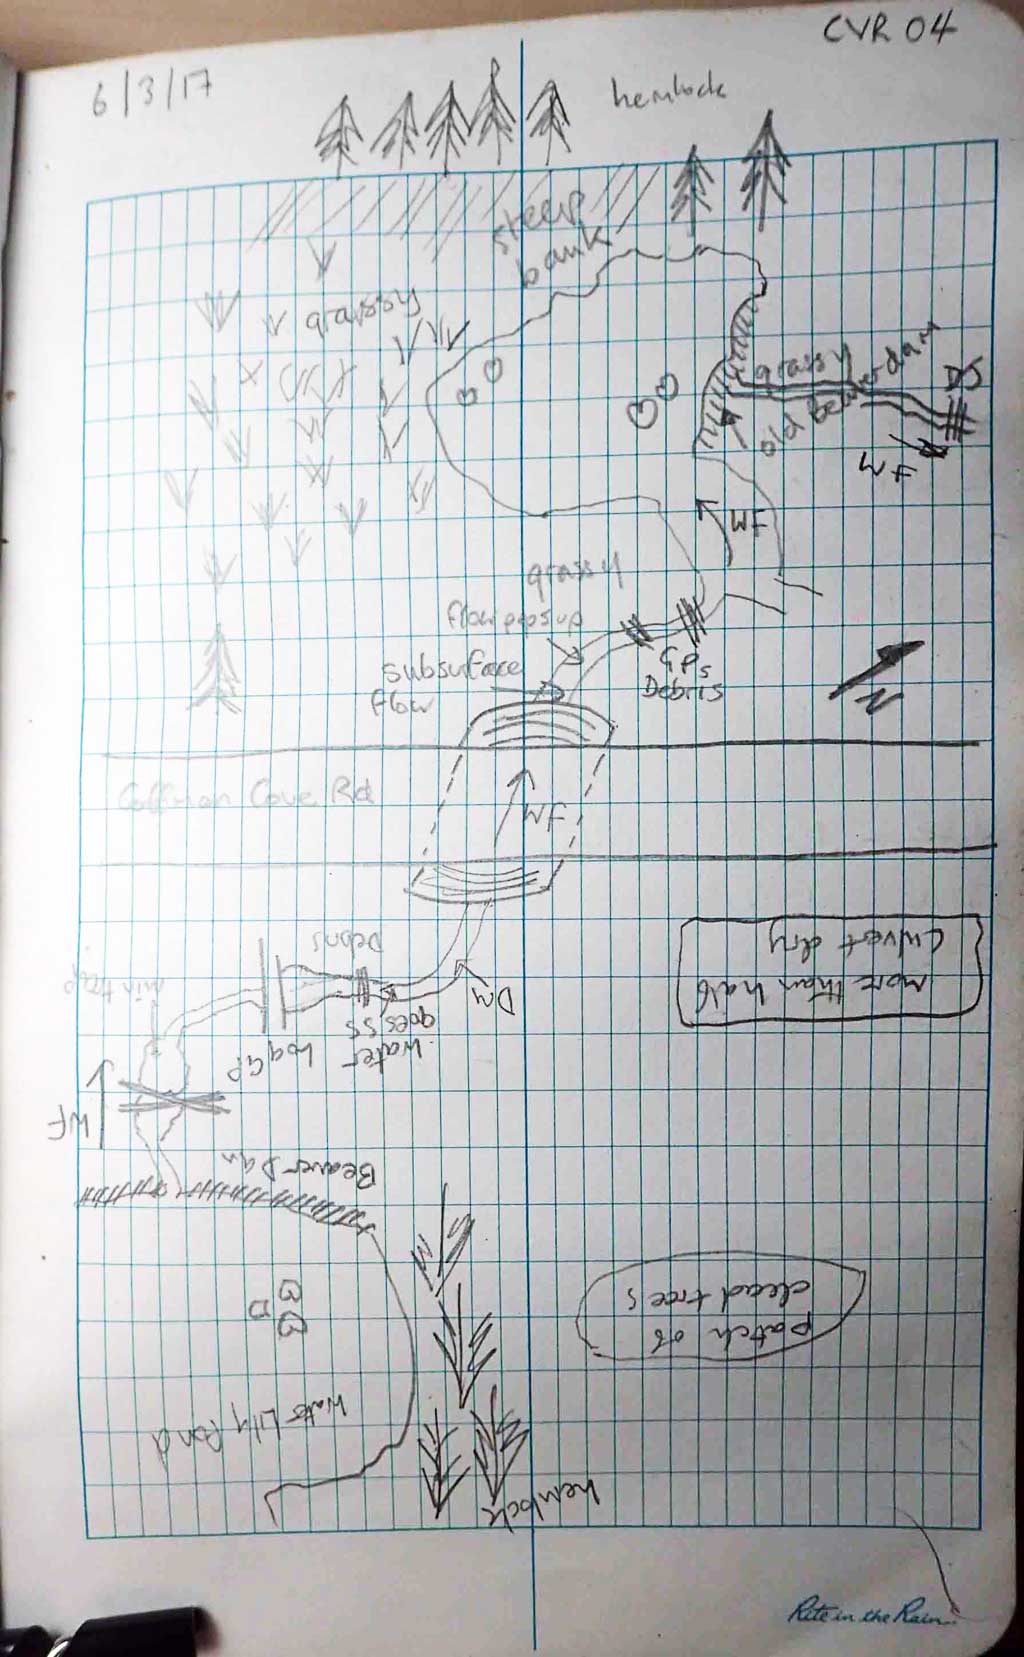 CVR 04
6/3/17
hemlock
steep
bank
grassy
grassy
old Beaver dam
DS
WF
WF
grassy
flow pops up
subsurface
flow
GPs
Debris
N
Coffman Cove Rd
WF
Debris
more than half
culvert dry
min trap
Dry
water
goes SS
Log GP
WF
Beaver Dam
patch of
dead trees
Water Lily Pond
hemlock
Rite in the Rain